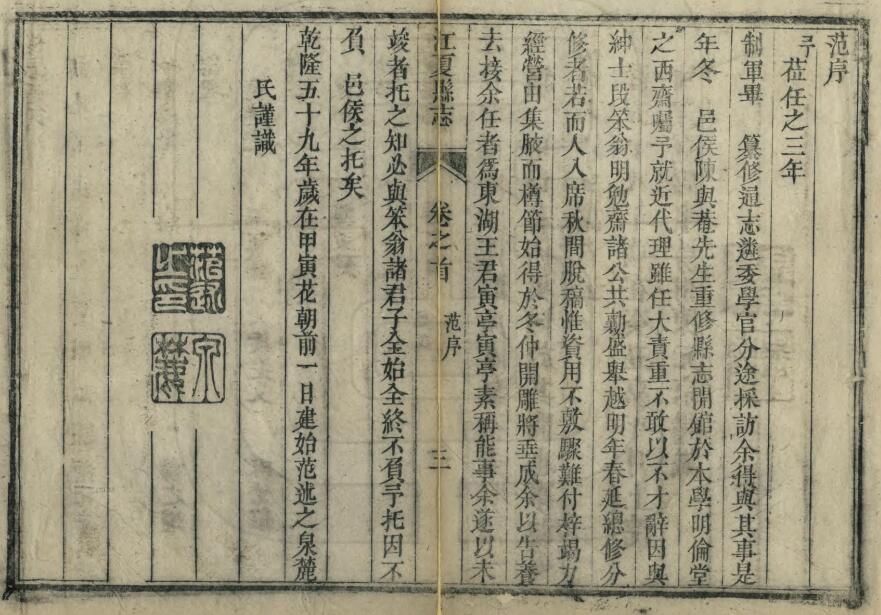 范序
予蒞任之三年
制軍畢　纂修通志遴委學官分途採訪余得與其事是
年冬　邑侯陳與菴先生重修縣志開館於本學明倫堂
之西齋囑予就近代理雖任大責重不敢以不才辭因與
紳士段笨翁明勉齋諸公共勷盛舉越明年春延總修分
修者若而人入席秋間脫稿惟資用不敷驟難付梓竭力
經營由集腋而樽節始得於冬仲開雕將垂成余以告養
去接余任者為東湖王君寅亭寅亭素稱能事余遂以未
江夏縣志　卷之首　范序　三
竣者托之知必與笨翁諸君子全始全終不負予托因不
負　邑侯之托矣
乾隆五十九年歲在甲寅花朝前一日建始范述之泉麓
氏謹識
范述之印
泉麓